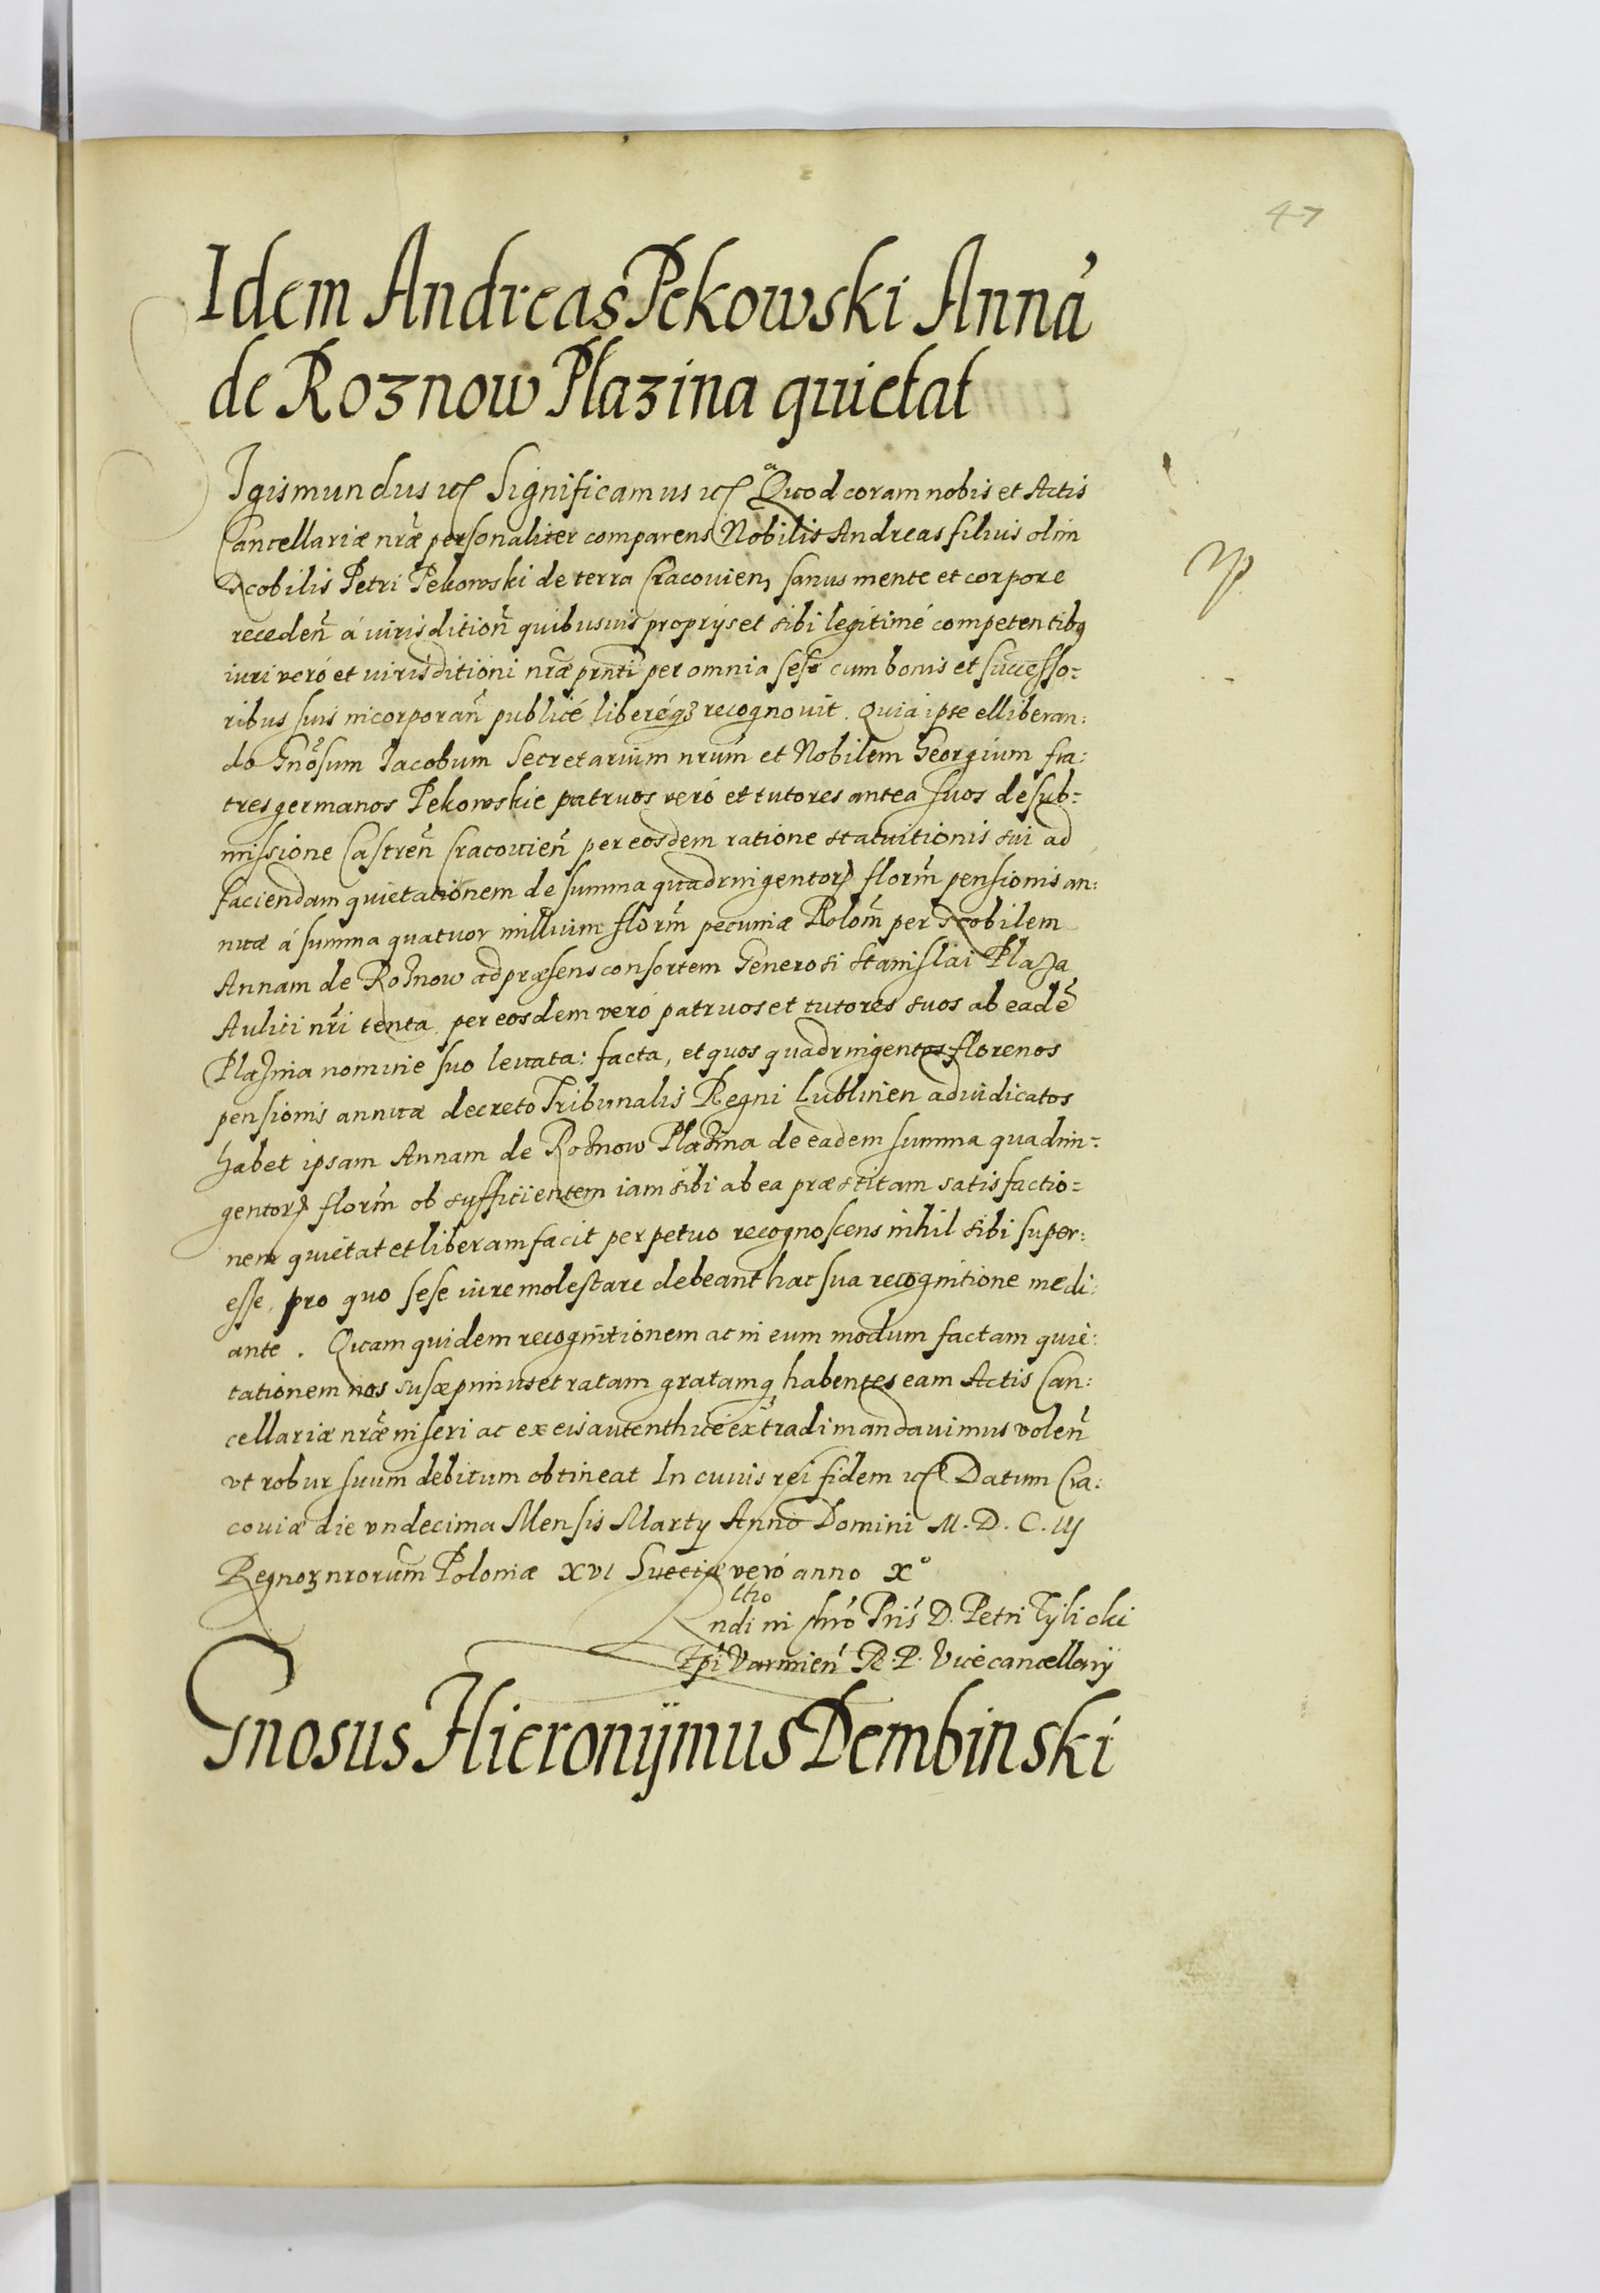 47
Idem Andreas Pekowski Annã
de Roznow Plazina quietat
Sigismundus etc Significamus etc Quod coram nobis et Actis
Cancellariæ nr̃æ personaliter comparens Nobilis Andreas filius olim
Nobilis Petri Pekowski de terra Cracouien, sanus mente et corpore
receden̄ á iurisdition̄ quibusuis proprijs et sibi legitimé competentibq
iuri veró et iurisditioni nr̃æ prñti per omnia sese cum bonis et successo=
ribus suis incorporan̄ publicé liberéqз recognouit. Quia ipse elliberan:
do Gnõsum Iacobum Secretarium nrũm et Nobilem Georgium fra:
tres germanos Pekowskie patruos veró et tutores antea suos de sub=
missione Castren̄ Cracouien̄ per eosdem ratione statuitionis sui ad
faciendam quietationem de summa quadringentorꝝ florm̃ pensionis an:
nuæ á summa quatuor millium florm̃ pecuniæ Polom̃ per Nobilem
Annam de Roznow ad præsens consortem Generosi Stanislai Plaza
Aulici nr̃i tenta per eosdem veró patruos et tutores suos ab eadē
Plazina nomine suo leuata: facta, et quos quadringentos florenos
pensionis annuæ decreto Tribunalis Regni Lublinen adiudicatos
habet ipsam Annam de Roznow Plazina de eadem summa quadrin=
gentorꝝ florm̃ ob sufficientem iam sibi ab ea præstitam satisfactio=
nem quietat et liberam facit perpetuo recognoscens nihil sibi super:
esse, pro quo sese iure molestare debeant hac sua recognitione medi:
ante. Quam quidem recognitionem ac in eum modum factam quie:
tationem nos suscæpimus et ratam gratamq habentes eam Actis Can:
cellariæ nr̃æ inseri ac ex eis autenthicé extradi mandauimus volen̄
vt robur suum debitum obtineat In cuius rei fidem etc Datum Cra:
couiæ die vndecima Mensis Martij Anno Domini M. D. C. IIJ
Regnoз nrorum Poloniæ XVI Sueciæ veró anno X°
Rndi in Chrõ Pris̃ D. Petri Tylicki
Epi Varmien̄ R. P. Vicecancellarij
Gnosus Hieronijmus Dembinski